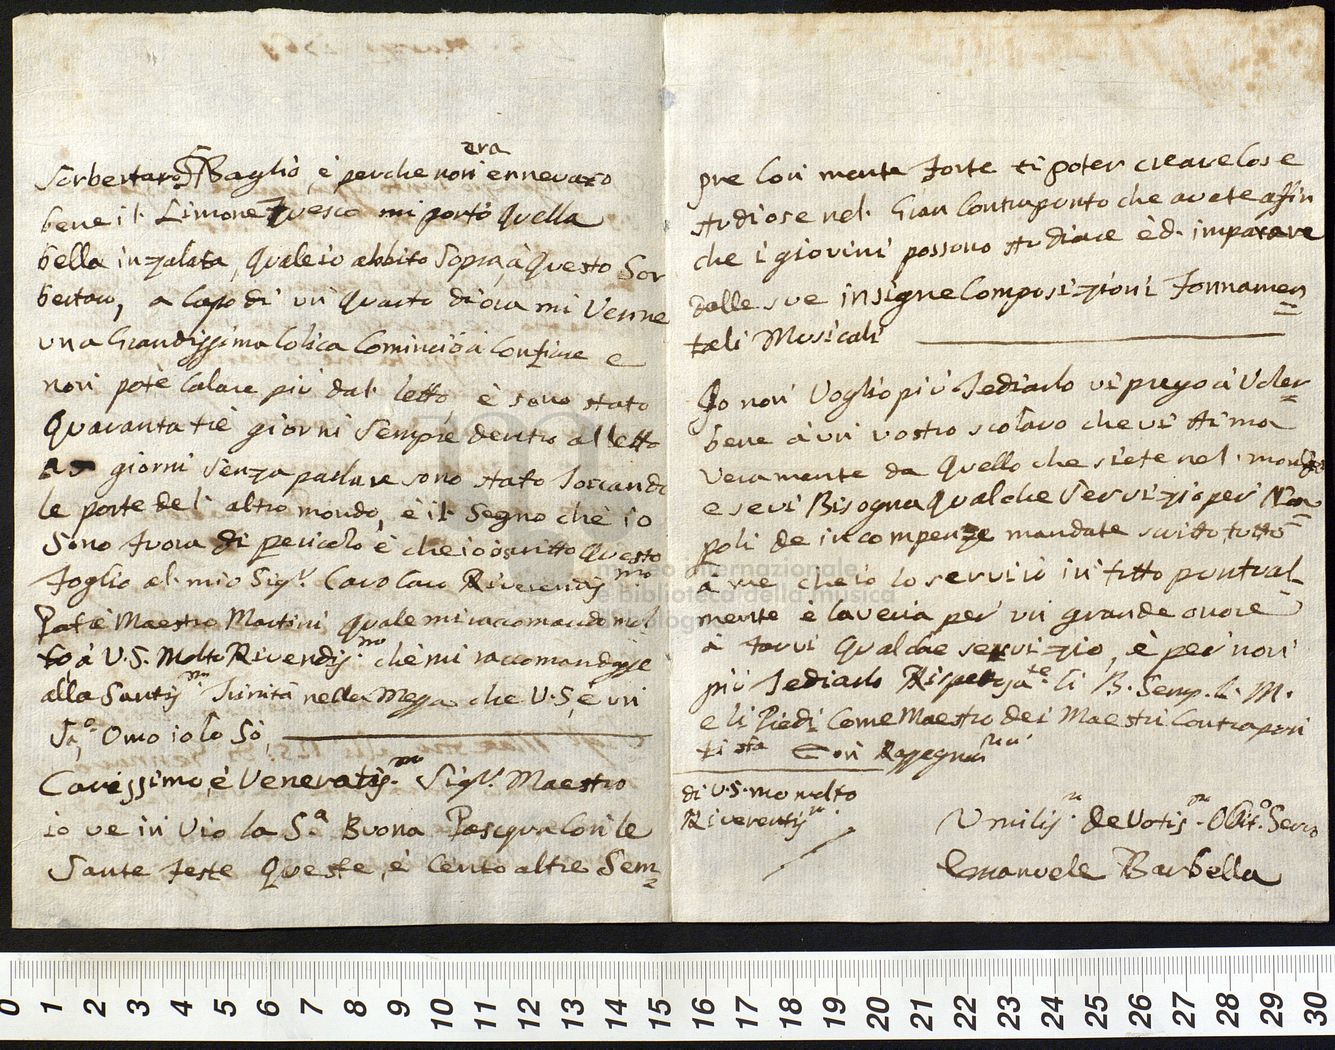 Sorbettaro Baglio è perche non era ennevato
bene il Limone fresco mi portò Quella
bella inzalata, Quale io abbito Sopra à Questo Sor
bettaro, a Capo di un Quarto di ora mi Venne
una Grandissima Colica Cominciò a Confiare e
non potè Calare più dal letto è sono stato
Quaranta trè giorni Sempre dentro al letto
giorni Senza parlare sono stato Toccando
le porte del altro mondo, è il Segno chè io
Sono fuora di pericolo è che io ò scritto Questo
Foglio al mio Sigr. Caro Caro Riverendismo
Patre Maestro Martini quale mi raccomando mol
to à V.S. Molto Rivendisi.mo chè mi raccomandasse
alla Santisma Trinità nella Messa che V.S. è un
Sa,o Omo io lo Sò,
Carissimo, è Veneratis.mo Sigr. Maestro
io ve in Vio la Sa Buona Pasqua Con le
Sante feste Queste, è Cento altre Sem=
pre Con mente forte ti poter creare Cose
studiose nel Gran Contrapunto che avete affin
che i giovini possono studiare è d. imparare
dalle sue insigne Composizioni Fonnamen=
tali Musicali
Io non Voglio più Tediarlo vi prego à Voler=
bene à un vostro scolaro che vi stima
veramente da Quello che siete nel mondo
e se vi Bisogna Qualche Servizio per Na=
poli de in compenze mandate scritto tutto
a me che io lo serviro in tutto pontual=
mente è laveria per un grande onore
à farvi Qualche servizio, è per non
più Tediarlo li B. Semp. L. M.
e li Piedi Come Maestro dei Maestri Contrapon
tista Con Rassegnar
di V.S. mo molto
Riverentis.mo
Umilis.mo deVotis.mo Obit.o Servo
Emanuele Barbella
museo internazionale
e biblioteca della musica
di bologna
0 1 2 3 4 5 6 7 8 9 10 11 12 13 14 15 16 17 18 19 20 21 22 23 24 25 26 27 28 29 30